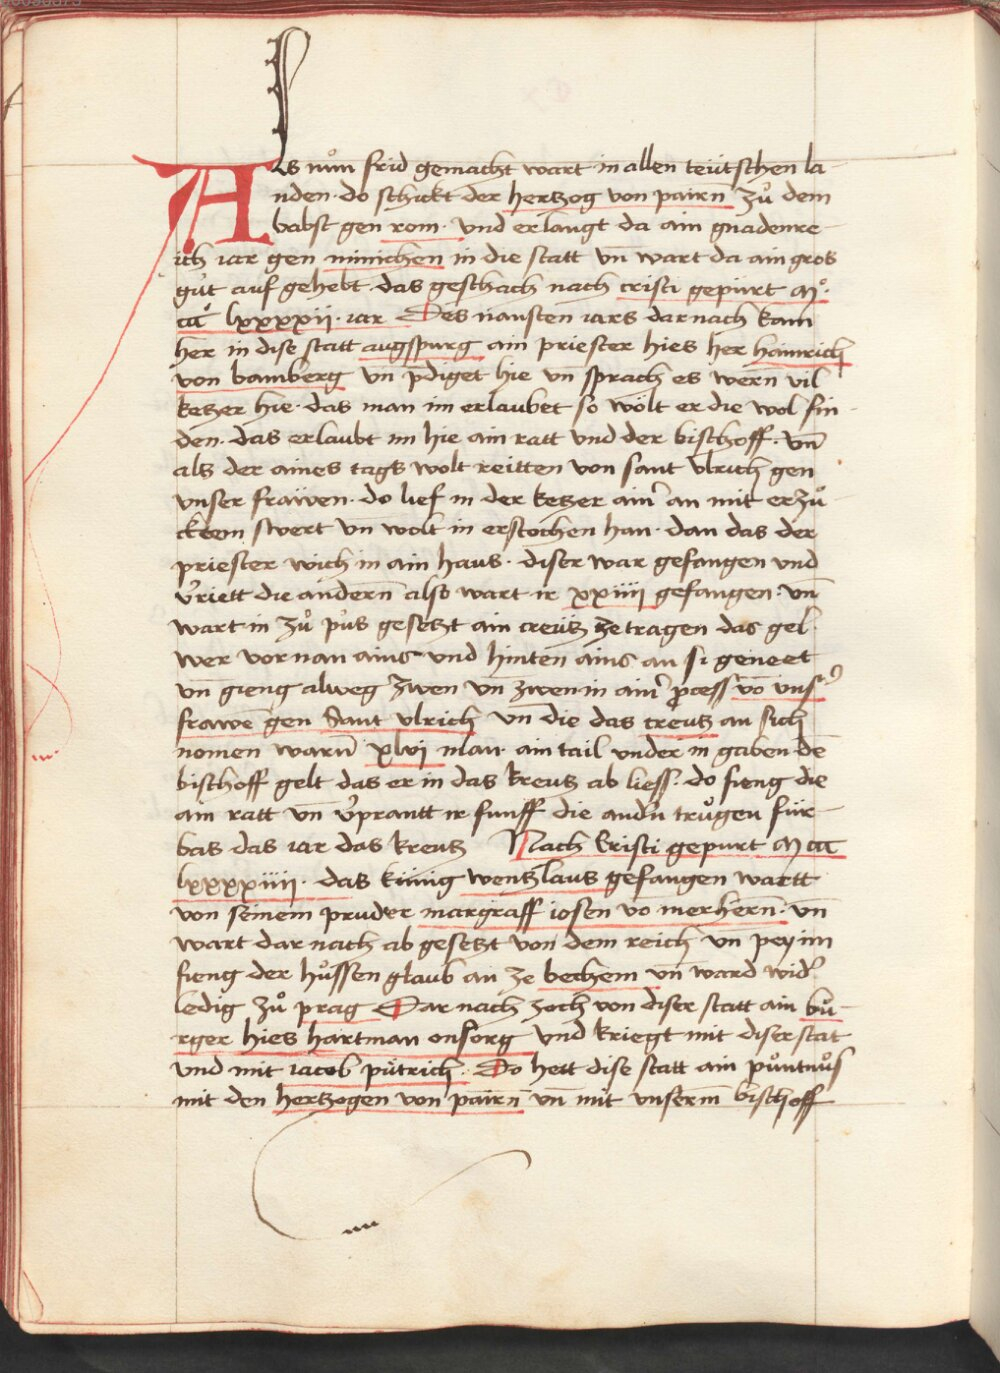 Als nuͦn frid gemacht wart in allen teütschen la-
nden· do schickt der hertzog von pairn̄ zuͦ dem
babst gen rom· und erlangt da ain gnadenre-
ich iar gen münichen in die statt vn̄ wart da ain gros
guͦt auf gehebt· das geschach nach cristi gepürt Mͦ·
ccc̄ lxxxxii· iar Des nausten iars darnach kam
her in dise statt augspurg ain priester hies her hainrich
von bamberg vn̄ p̄diget hie vn̄ sprach es wern̄ vil
ketzer hie· das man im erlaubet so wölt er die wol fin-
den· das erlaubt im hie ain ratt vnd der bischoff· vn̄
als der aines tags wolt reitten von sant vlrich gen
vnser frawen· do lief in der ketzer ain̾ an mit erzuͦ
cktem swert vn̄ wolt in erstochen han· dan das der
priester wich in ain haus· diser war gefangen vnd
v̾riett die andern̄ also wart ir xxiiii gefangen· vn̄
wart in zuͦ puͦs gesetzt ain creütz ze tragen das gel-
wer vornan ains vnd hinten ains an si geneet
vn̄ gieng alweg zwen vn̄ zwen in ain̾ p̄cess vō vns̾
frawē gen Sant vlrich vn̄ die das creutz an sich
nomen warn̄ xlvi man· ain tail vnder in gaben dē
bischoff gelt das er in das kreutz ab liess· do fieng die
ain ratt vn̄ v̾prantt ir funff die and̾n truͦgen für-
bas das iar das kreutz Nach kristi gepurt M ccc̄
lxxxxiiii· das künig wentzlaus gefangen wartt
von seinem pruder margraff iosen vō merhern̄· vn̄
wart dar nach ab gesetzt von dem reich vn̄ pey im
fieng der huͦssen glaub an ze bechem vn̄ ward wid̾
ledig zuͦ prag Dar nach zoch von diser statt ain bu-
rger hies hartman onsorg vnd kriegt mit diser stat
vnd mit iacob pütrich· Do hett dise statt ain puͦntnuͦs
mit den hertzogen von pairn̄ vn̄ mit vnserm̄ bischoff